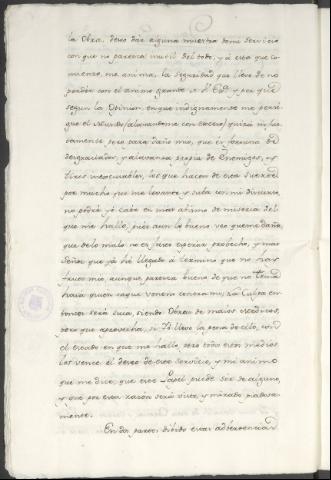 la Obra, devo dar alguna muestra de mi servicio
con que no parezca inutil del todo, y á esto que co-
mienzo, me anima la seguridad que llevo de no
perder con el animo grande de V. Exª. y por que
segun la Opinion, en que indignamente me persi-
gue el Mundo (alavandome con exceso) quizá in jus-
tamente pero para daño mio, que es fortuna de
desgraciados, y alavanza propia de Enemigos,
tiros inescusables, los que hacen de esta suerte
por mucho que me levante, y suba con mi discurso,
no podré yá caér en mas abismo de miseria del
que me hallo, pues aun lo bueno veo que me daña,
que de lo malo no es justo esperar probecho, y mas
Señor que yá hé llegado á termino que no hay
fruto mio, aunque parezca bueno de que no
haya quien saque veneno contra mi, la Culpa en-
tonces será suia, siendo Obras de malos
pero que aprovecha, si Yo llevo la pena de ello, con
el estado en que me hallo, pero todos estos miedos
los vence el deseo de este servicio, y mi animo
que me dice, que este Papel puede ser de alguno,
y que por esta razón será visto, y mirado piadosa-
mente.
En dos partes divido estas advertencias